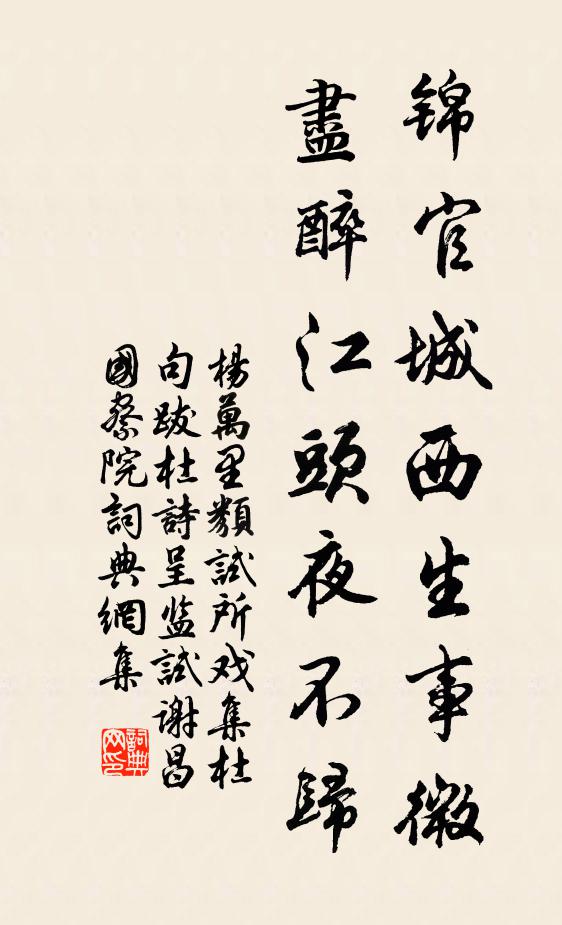 锦官城西生事微
盡醉江頭夜不歸
楊萬里類試所戏集杜
句跋杜詩呈监試謝昌
國察院詞典網集
詞典
网印